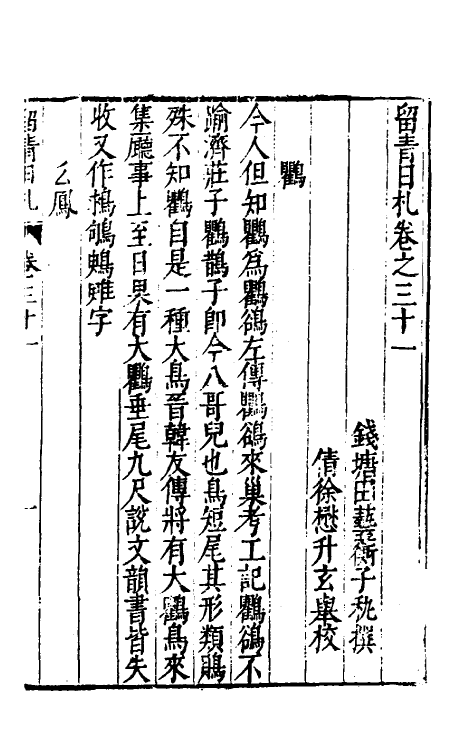 留青日札卷之三十一
錢塘田藝蘅子秇撰
倩徐懋升玄舉校
鸜
今人但知鸜爲鸜鵒左傳鸜鵒來巢考工記鸜鵒不
踰濟莊子鸜鵲子卽今八哥兒也鳥短尾其形類鵙
殊不知鸜自是一種大鳥晉韓友傳將有大鸜鳥來
集廳事上至日果有大鸜垂尾九尺說文韻書皆失
收又作鴝雊字
幺鳳
留青日札
卷三十一
一